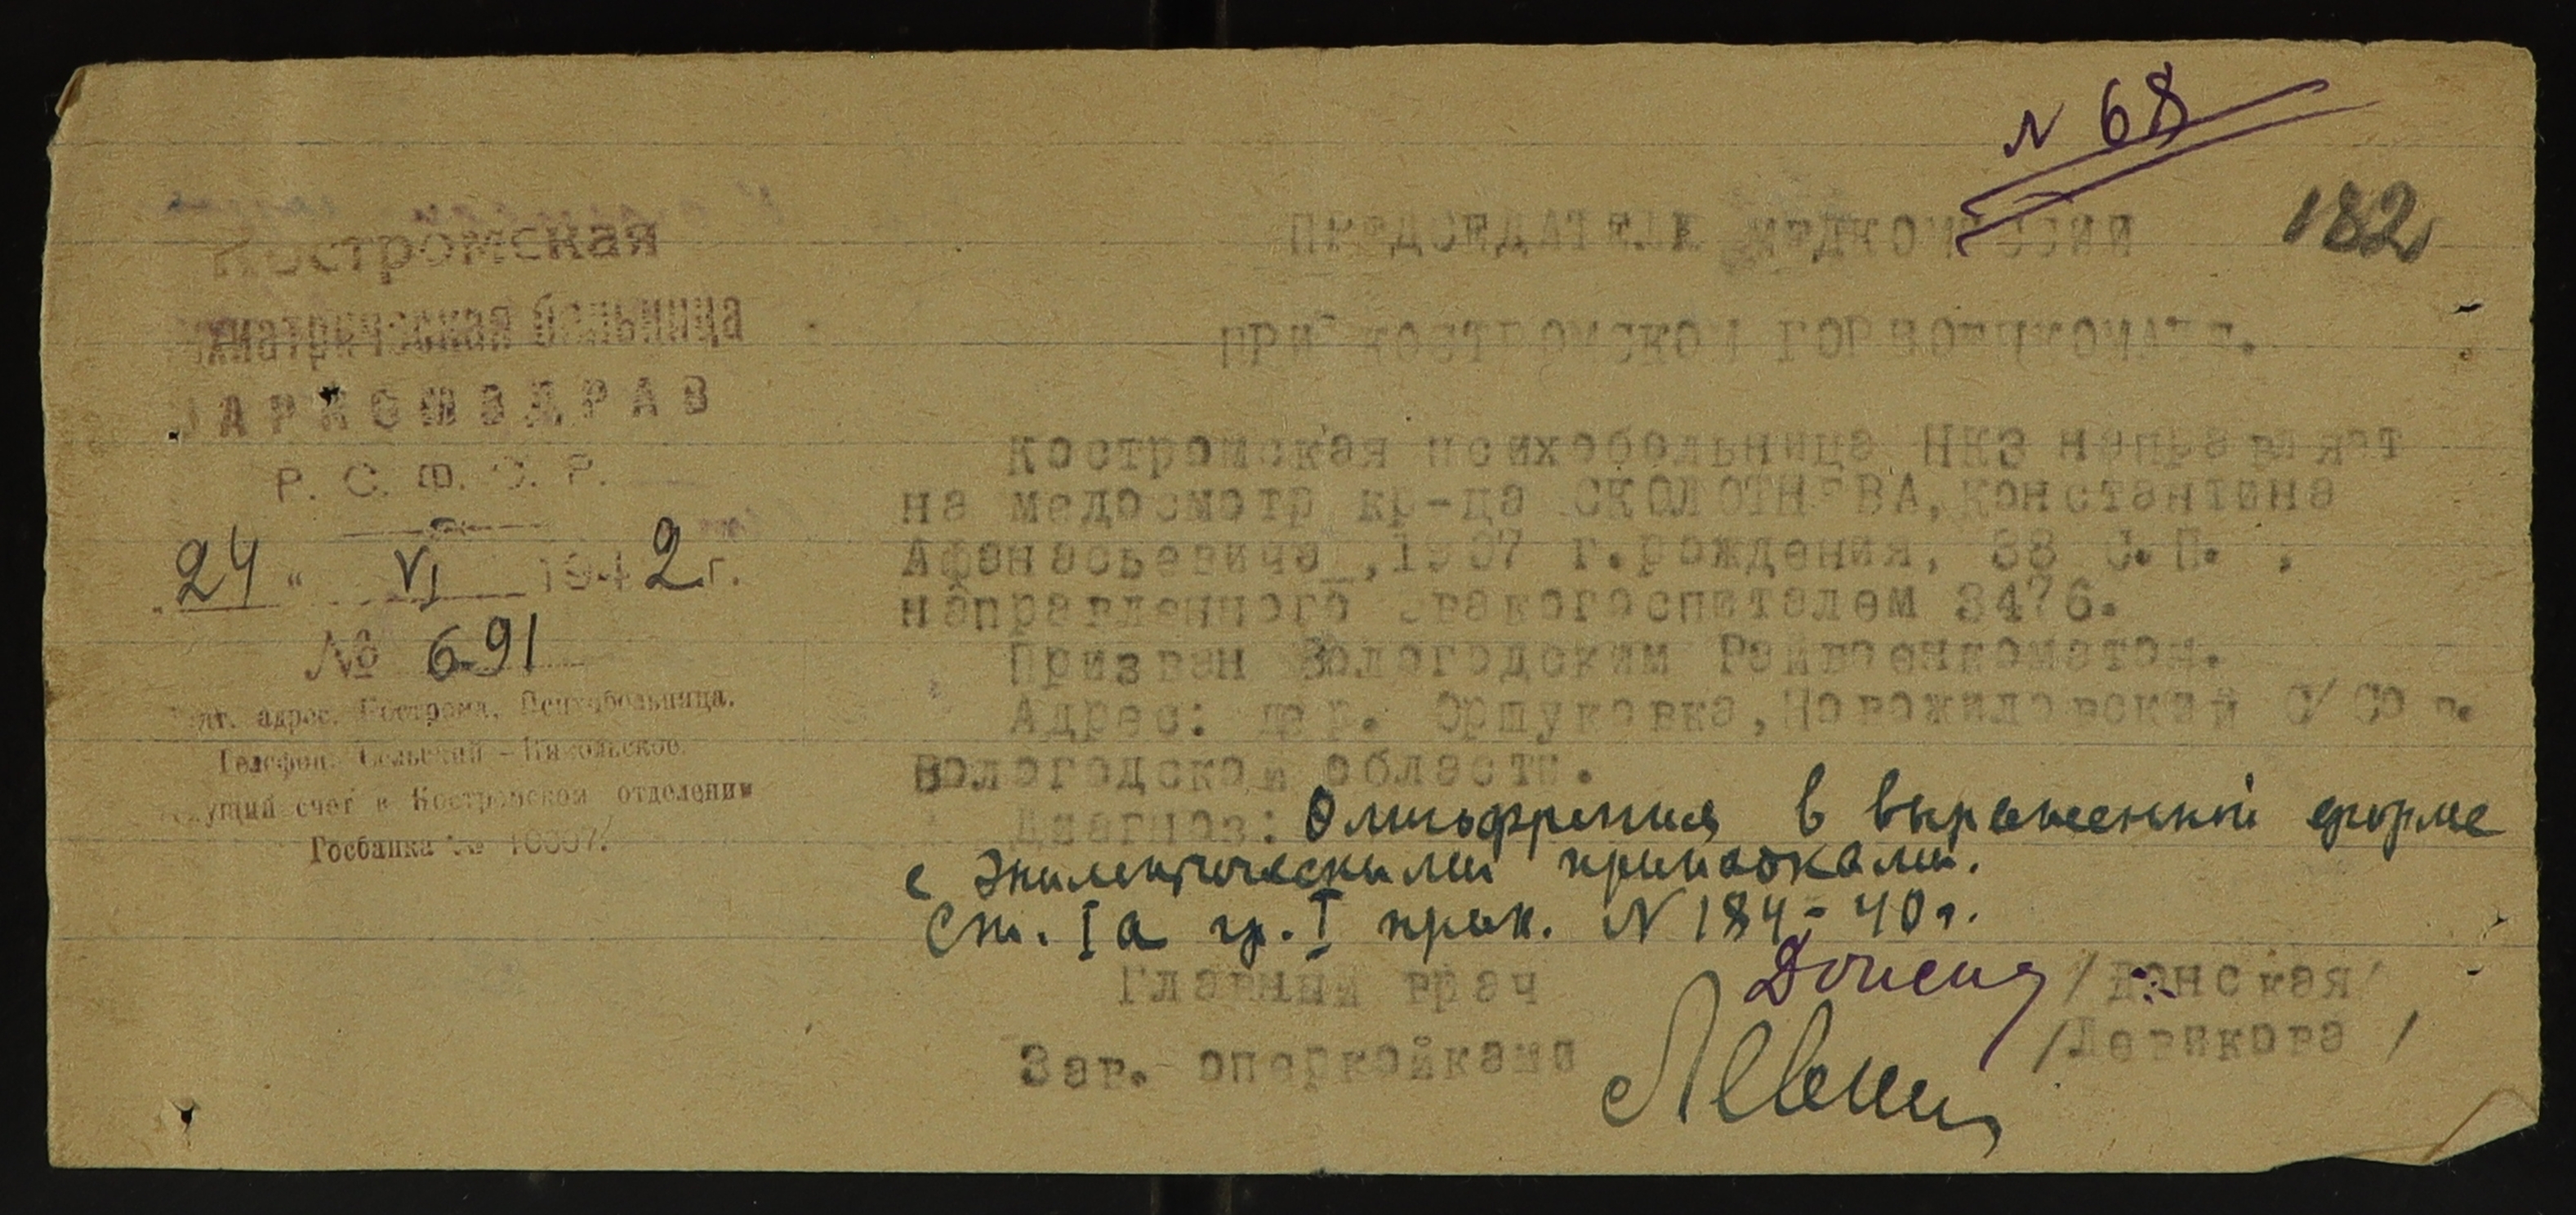 N 68
182
Костромская
психиатрическая больница
НАРКОМЗДРАВ
Р. С. Ф. С. Р.
24 " VI 1942 г.
№ 691
адрес. Кострома, Психобольница.
Телефон. Сельский – Никольское.
Текущий счет в Костромском отделении
Госбанка №
ПРЕДСЕДАТЕЛЮ МЕДКОМИССИИ
ПРИ КОСТРОМСКОМ ГОРВОЕНКОМАТЕ.
Костромская психобольница НКЗ направляет
на медосмотр кр-ца СКОЛОТНЕВА, Константина
Афанасьевича ,1907 г.рождения, 38 С.П. ,
направленного эвакогоспиталем 3476.
Призван Вологодским Райвоенкоматом.
Адрес: дер. Оршуковка, Новожиловский С/Сов.
Вологодской области.
Диагноз: Олигофрения в выраженной форме
с эпилептическими припадками.
Ст. Iа гр. I прик. N 184-40 г.
Главный врач /Донская/
Зав. оперкойками /Левикова /